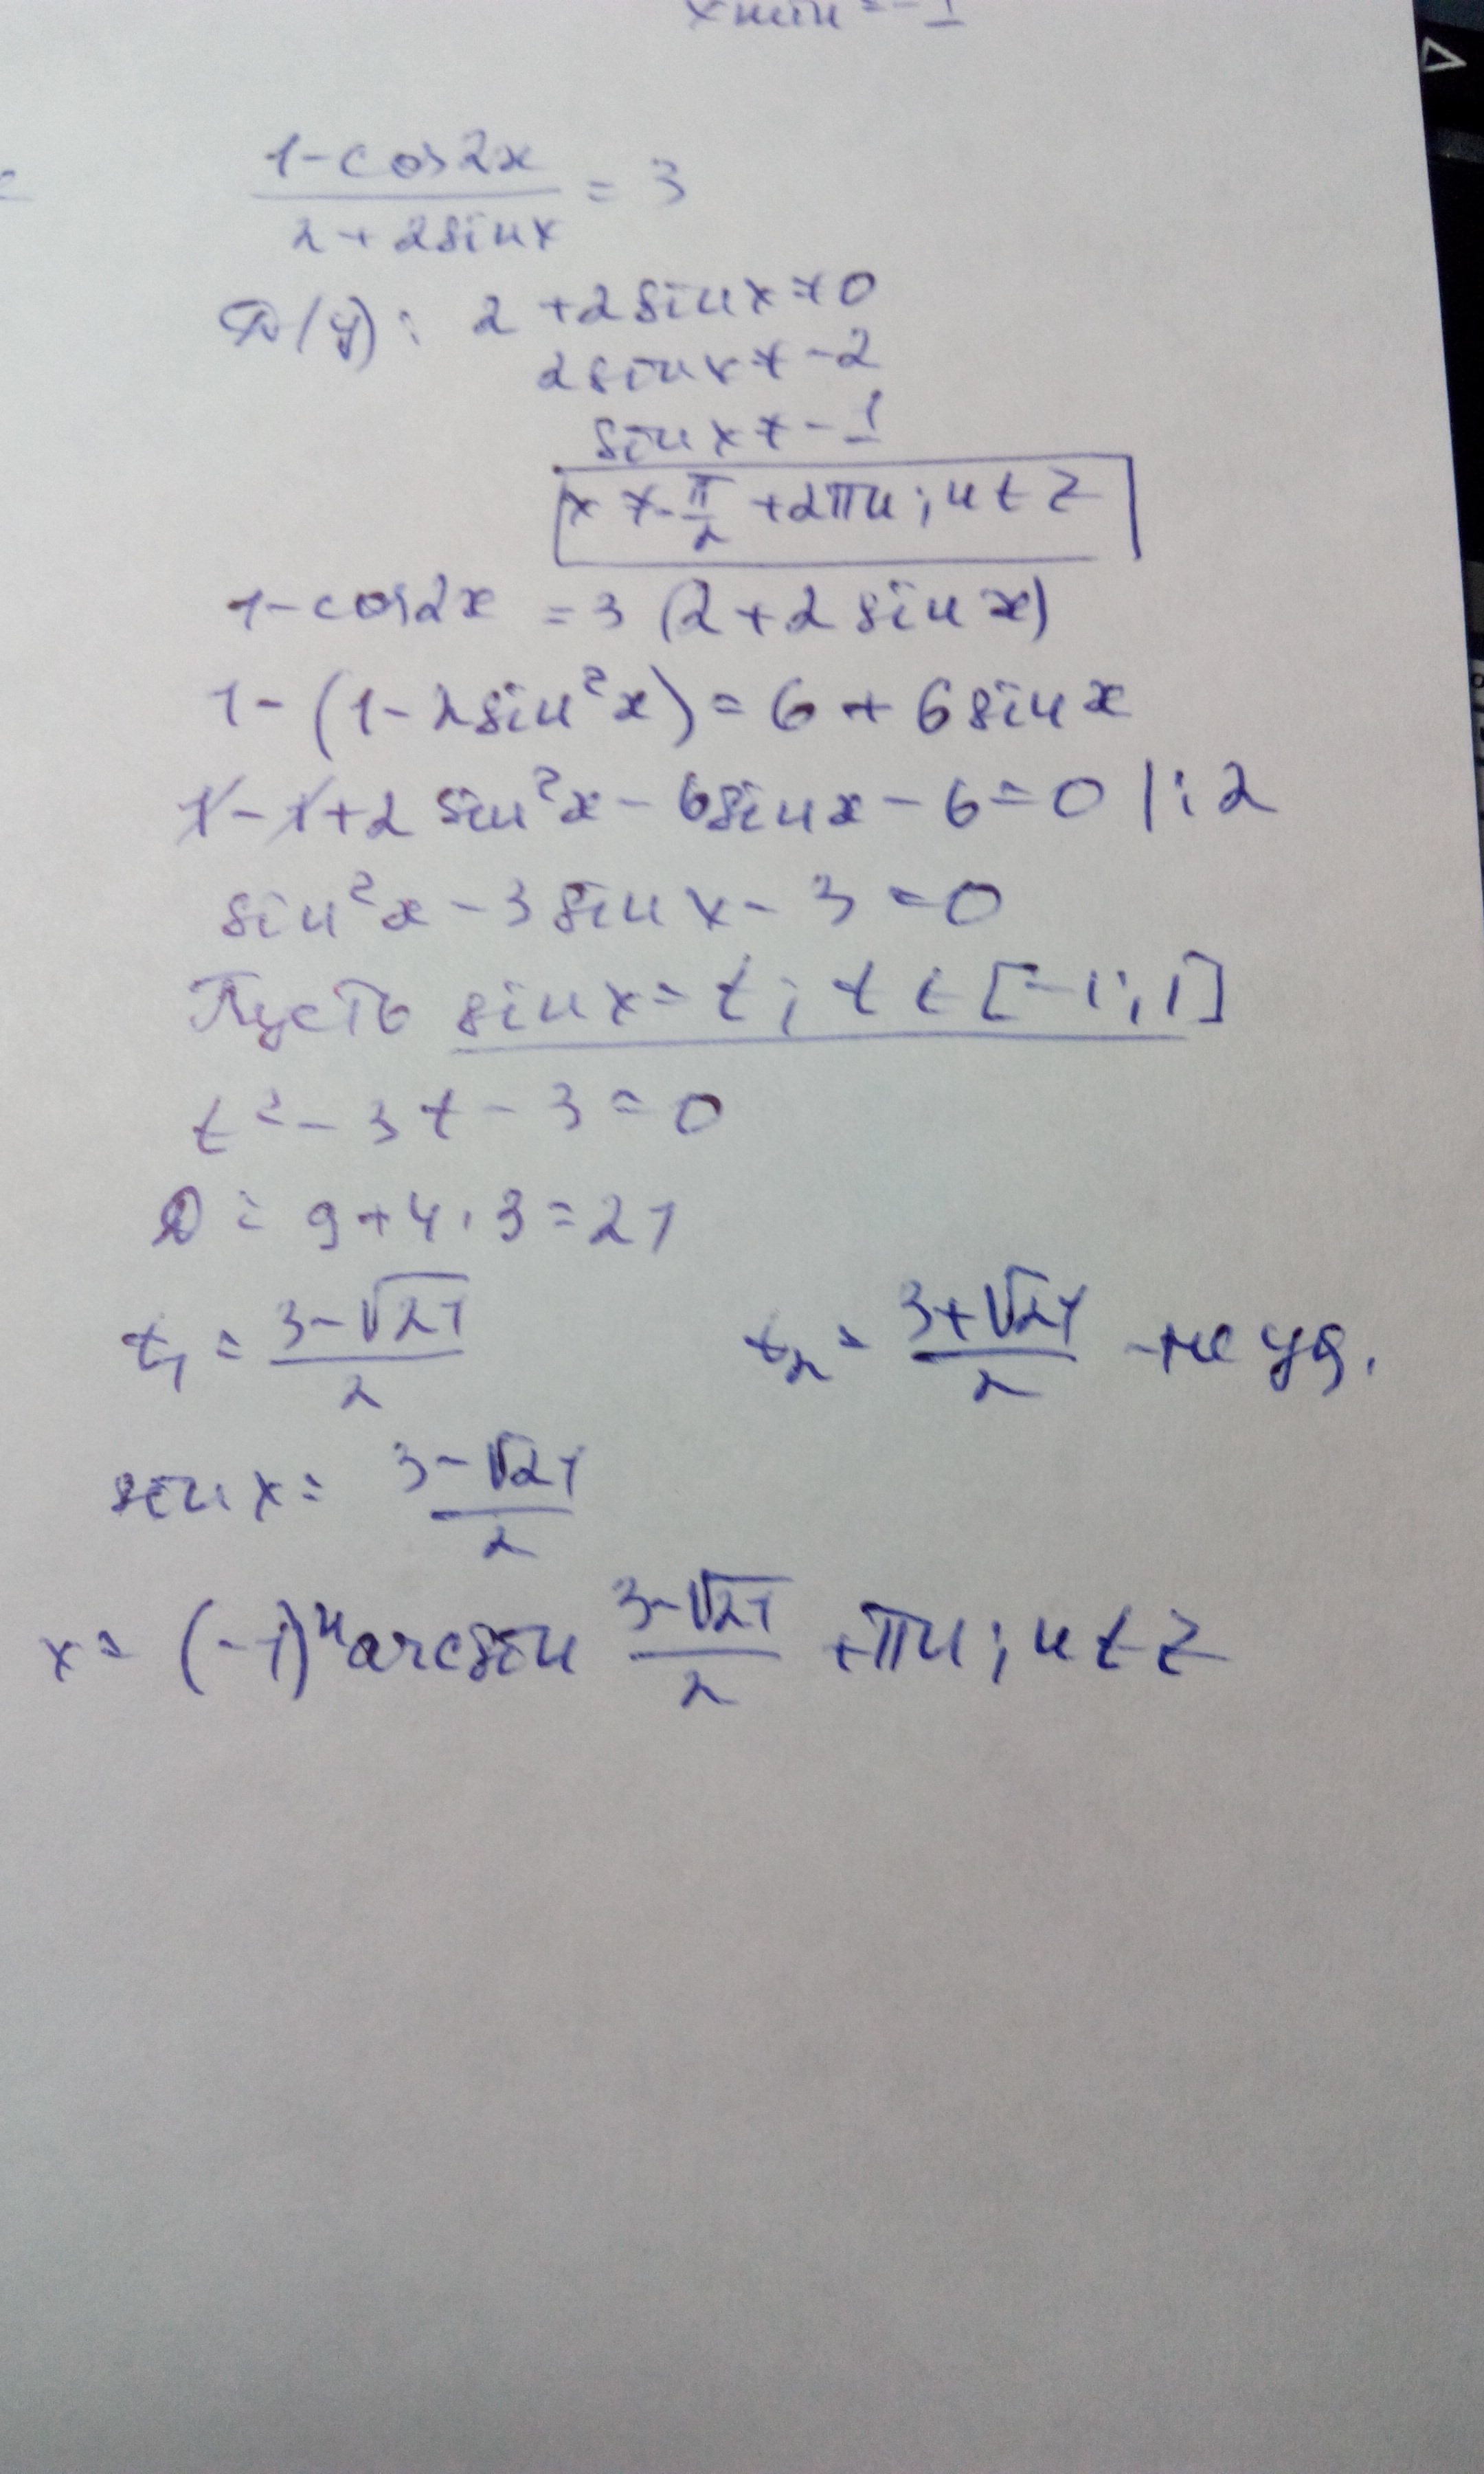 xmin = -1
(1-cos2x)/(2+2sinx) = 3
D(y): 2+2sinx≠0
2sinx≠-2
sinx≠-1
x≠-π/2+2πn; n∈Z
1-cos2x = 3(2+2sinx)
1-(1-2sin²x) = 6+6sinx
1-1+2sin²x-6sinx-6=0 |:2
sin²x-3sinx-3=0
Пусть sinx=t; t∈[-1;1]
t²-3t-3=0
D = 9+4·3=21
t₁ = (3-√21)/2 t₂ = (3+√21)/2 -не уд.
sinx = (3-√21)/2
x = (-1)ⁿarcsin (3-√21)/2 +πn; n∈Z